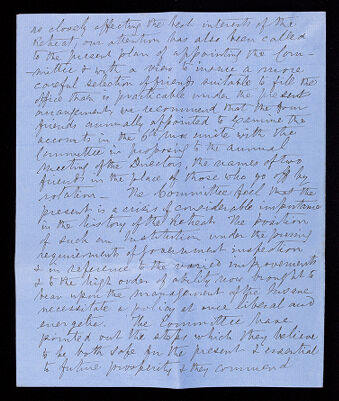 so closely affecting the best interests of the
Retreat; our attention has also been called
to the present plan of appointing the Com-
mittee & with a view to insure a more
careful selection of friends suitable to fill the
office than is practicable under the present
arrangement, we recommend that the four
friends annually appointed to examine the
accounts in the 6th mo. unite with the
Committee in proposing to the annual
Meeting of the Directors, the names of two
friends in the place of those who go off by
rotation – The Committee feel that the
present is a crisis of considerable importance
in the history of the Retreat. The position
of such an Institution under the
requirements of government inspection
& in reference to the varied improvements
& to the high order of ability now brought to
bear upon the management of the Insane
necessitate a policy at once liberal and
energetic. The Committee have
pointed out the steps which they believe
to be both safe for the present & essential
to future prosperity & they commend